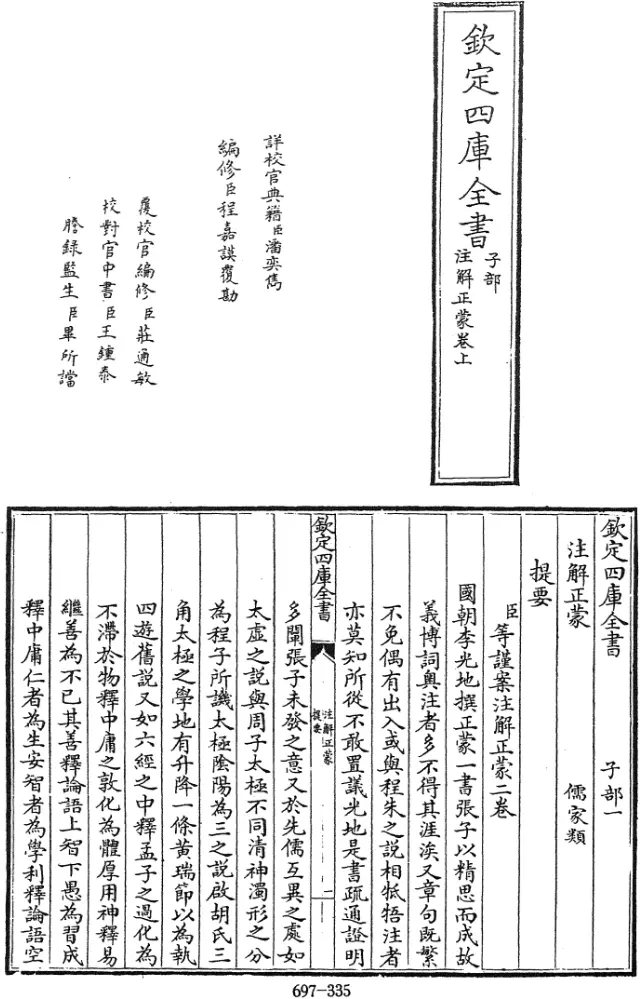 欽定四庫全書
子部
注解正蒙卷上
詳校官典籍臣潘奕雋
編修臣程嘉謨覆勘
覆校官編修臣莊通敏
校對官中書臣王鍾泰
謄錄監生臣畢所𧫴
欽定四庫全書 子部一
注解正蒙 儒家類
提要
臣等謹案注解正蒙二卷
國朝李光地撰正蒙一書張子以精思而成故
義博詞奧注者多不得其涯涘又章句既繁
不免偶有出入或與程朱之說相牴牾注者
亦莫知所從不敢置議光地是書疏通證明
欽定四庫全書
注解正蒙
提要
二
多闡張子未發之意又於先儒互異之處如
太虛之說與周子太極不同清神濁形之分
為程子所譏太極陰陽為三之說啟胡氏三
角太極之學地有升降一條黃瑞節以為執
四遊舊說又如六經之中釋孟子之過化為
不滯於物釋中庸之敦化為體厚用神釋易
繼善為不已其善釋論語上智下愚為習成
釋中庸仁者為生安智者為學利釋論語空
697-335